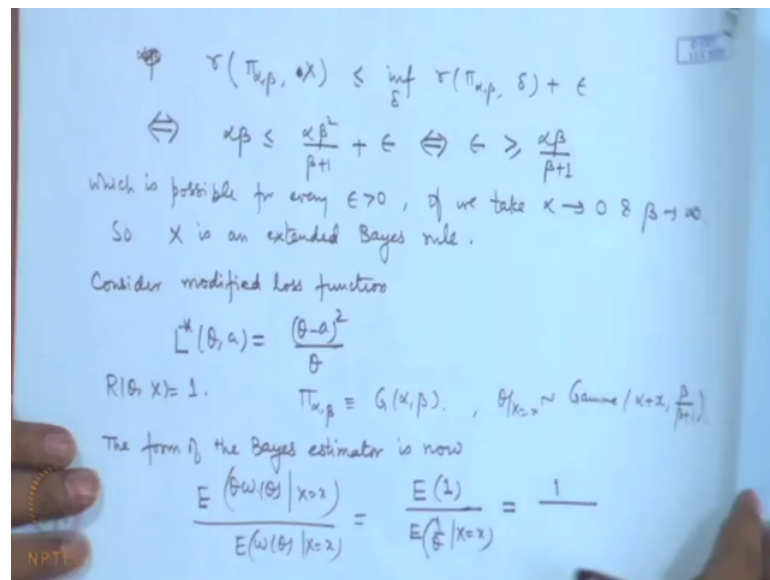 r(Π_{α,β}, X) ≤ inf_δ r(Π_{α,β}, δ) + ε
⇔ αβ ≤ αβ²/(β+1) + ε ⇔ ε ≥ αβ/(β+1)
which is possible for every ε>0, if we take α→0 & β→∞.
So X is an extended Bayes rule.
Consider modified loss function
L*(θ,a) = (θ-a)²/θ
R(θ, X) = 1. Π_{α,β} ≡ G(α,β). , θ|_{X=x} ~ Gamma(α+x, β/(β+1)).
The form of the Bayes estimator is now
E(θω(θ)|X=x)/E(ω(θ)|X=x) = E(1)/E(1/θ|X=x) = 1/
NPTEL